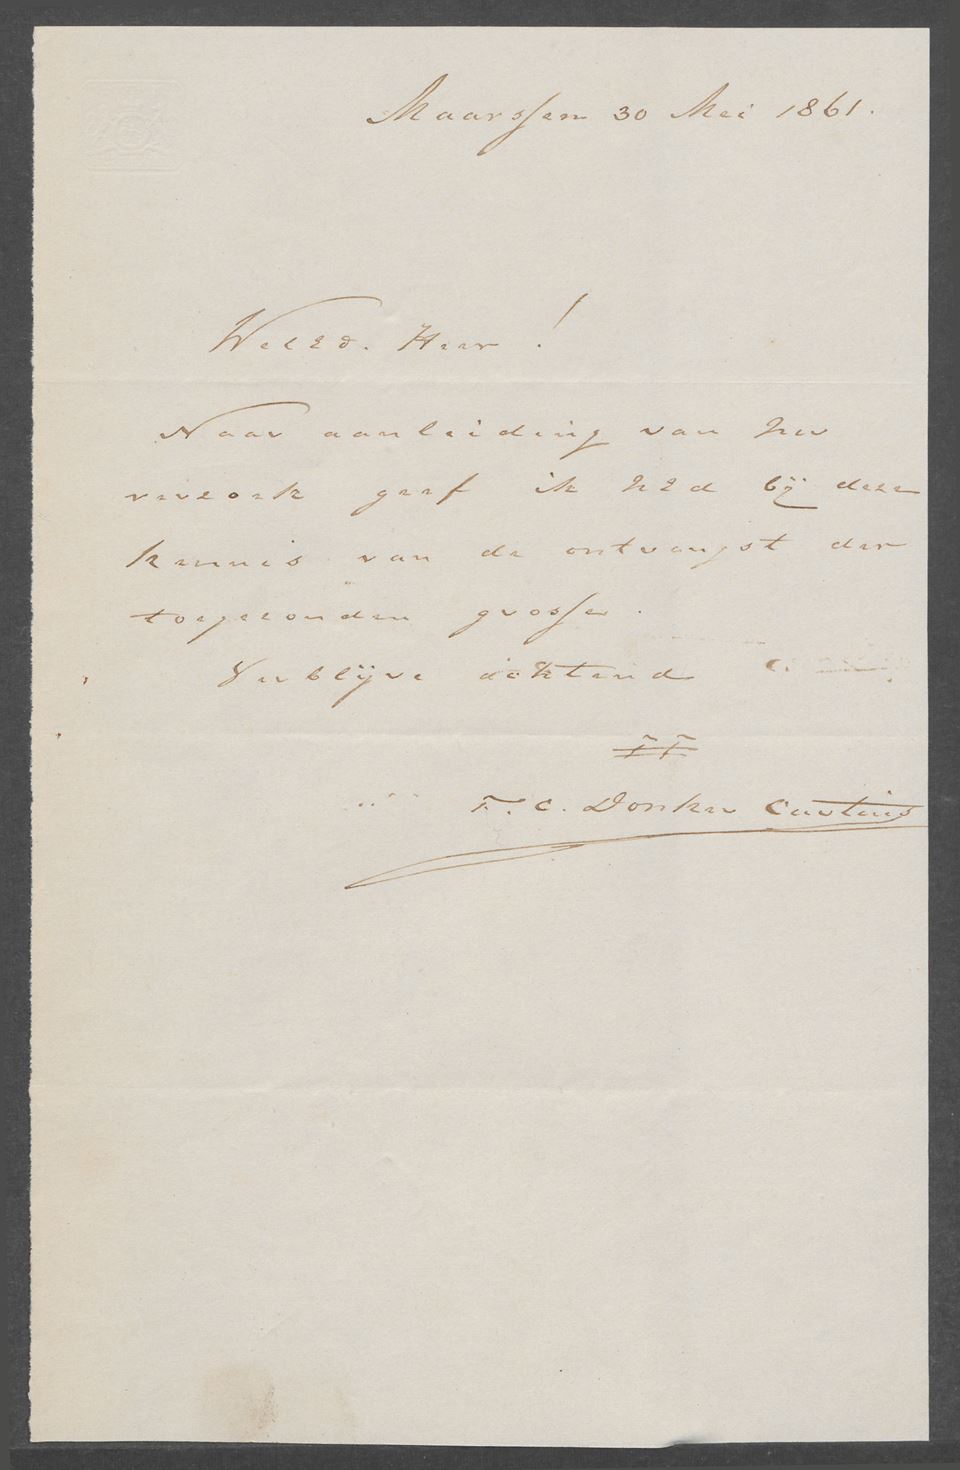 Maarssen 30 Mei 1861.
WelEd. Heer!
Naar aanleiding van Uw
verzoek geef ik UEd bij deze
kennis van de ontvangst der
toegezonden grosse.
Verblijve achtend
F. C. Donker Curtius